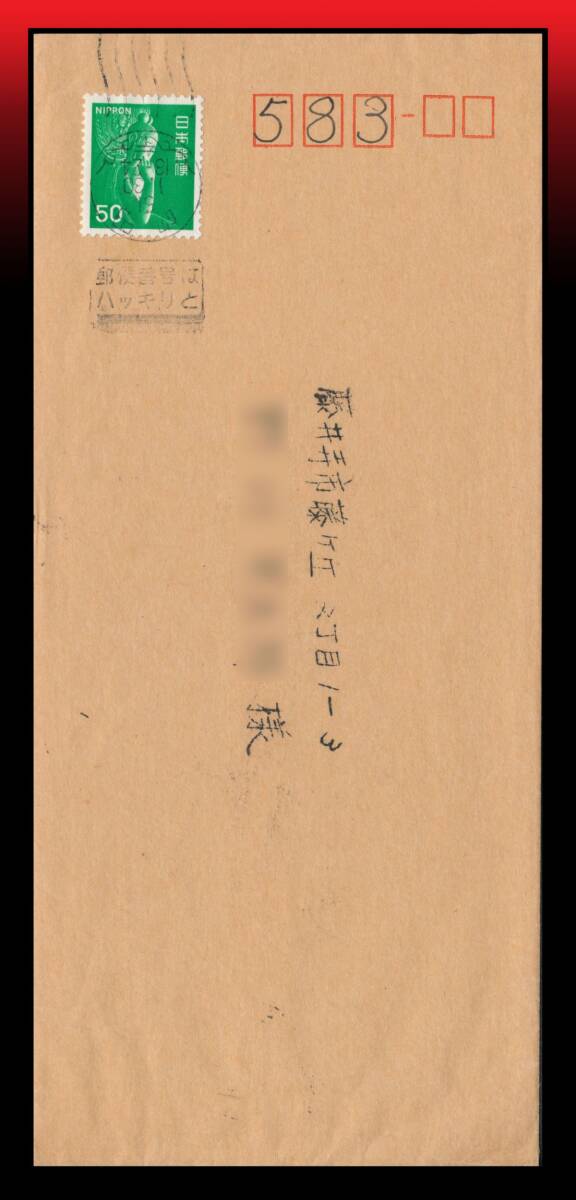 583-
NIPPON
日本郵便
50
郵便番号は
ハッキリと
藤井寺市藤ケ丘 2丁目1-3
様